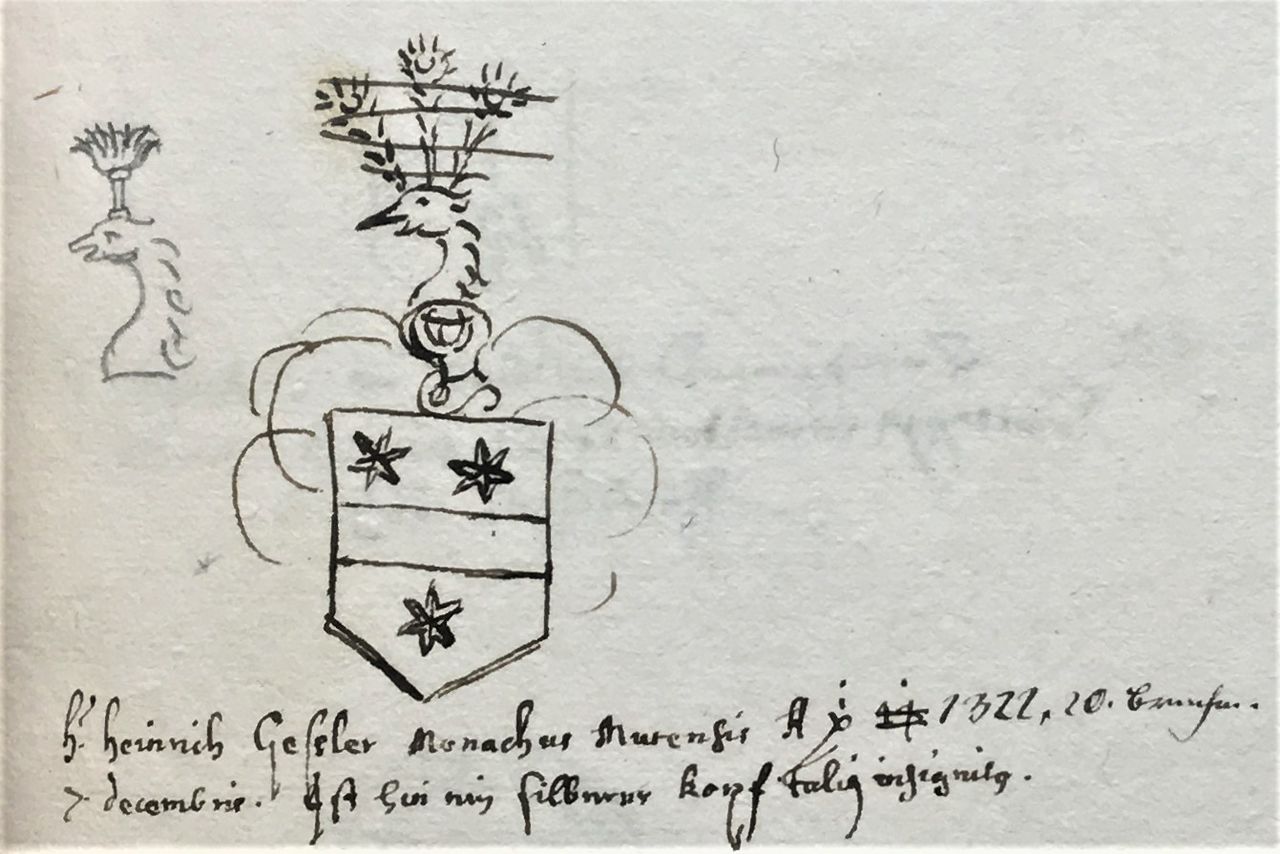 hr. heinrich Gessler Monachus Murensis A 1322, 20.
7 decembris. Ist hui ein silberner kopf talis insignits.